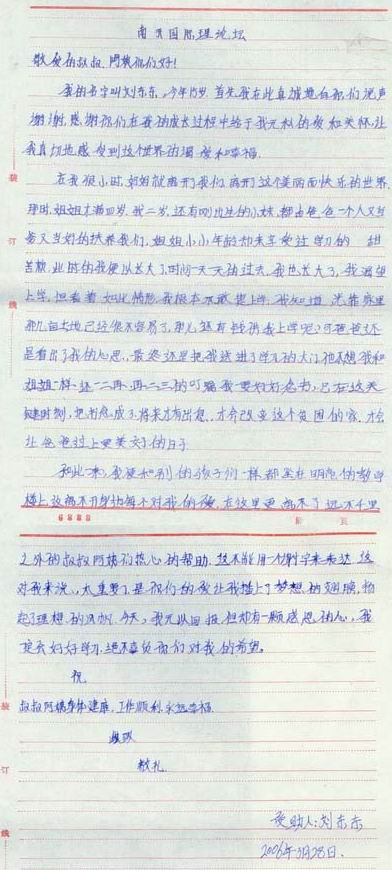 敬爱的叔叔、阿姨你们好!
我的名字叫刘东东,今年15岁,首先我在此真诚地向你们说声
谢谢,感谢你们在我的成长过程中给于我无私的爱和关怀,让
我真切地感受到这个世界的温暖和幸福.
在我很小时,妈妈就离开了我们,离开了这个美丽而快乐的世界
那时,姐姐才满四岁,我二岁,还有刚出生的小妹,都由爸爸一个人又当
爹又当妈的扶养我们,姐姐小小年龄却未享受过学习的 甜
装
订
线
上学,但看着如此情形,我根本不敢提上学,我知道,光靠家里
那几亩土地已经很不容易了,那儿还有钱供我上学呢?可爸爸还
是看出了我的心思,最终还是把我送进了学儿的大门,他不想我和
姐姐一样,还一二再、再二三的叮嘱我要好好念书,
把书念成了,将来才有出息,才会改变这个贫困的家,才会
让爸爸过上更美好的日子.
和别的孩子们一样都坐在明亮的教学
楼上,这离不开 对我的 ,在这里更离不了远在千里
页
之外的叔叔阿姨们热心的帮助,这不能用一个谢字来表达,这
对我来说,太重要了,是你们的爱让我插上了梦想的翅膀,扬
起了理想的风帆,今天,我无以回报,但却有一颗感恩的心,我
定会好好学习,绝不辜负你们对我的希望。
祝
叔叔阿姨身体健康,工作顺利,永远幸福.
敬礼
装
订
线
受助人:刘东东
2006年3月28日.